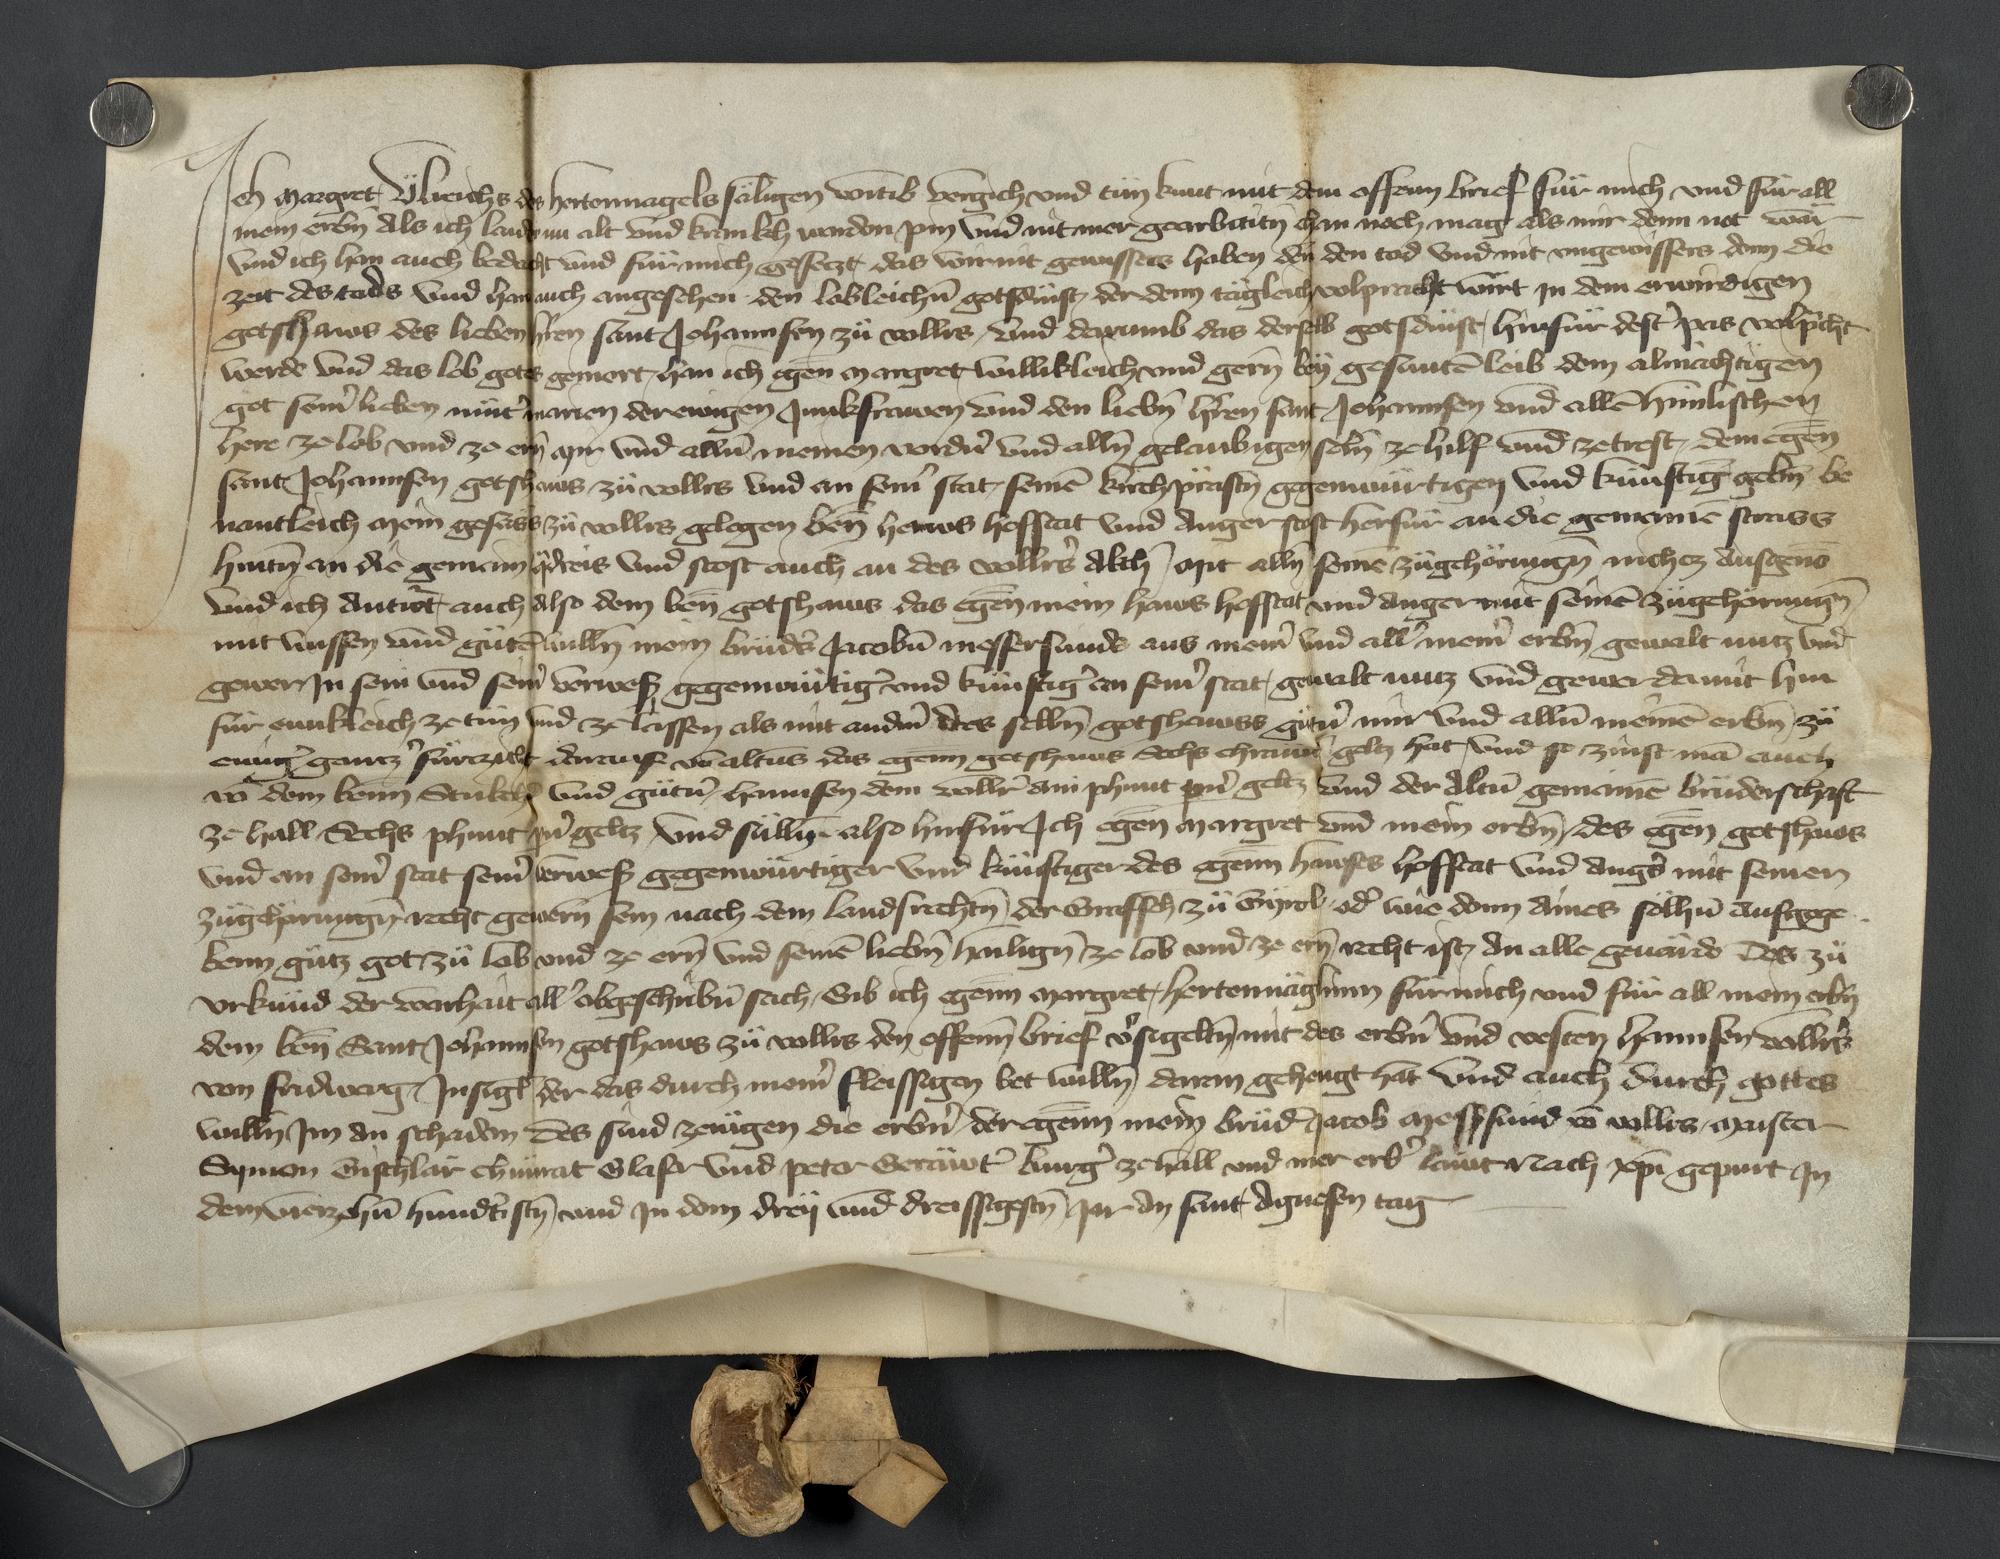 Ich Margret Ůlreichs des hertennagels säligen witib vergich und tůn kunt mit dem offenn brief für mich und für all
mein erbn̄ Als ich laider nu alt und krankh worden pin Und nit mer gearbaitn̄ chan noch mag als mir denn not wär
Und ich han auch bedacht und für mich gesetzt das wir nit gewissers haben den den tod und nit ungewissers denn die
zeit des tods Und han auch angesehen den lobleichn̄ gotsdinst der denn tägleich volpracht wirt in dem erwirdigen
gotshaws des lieben hr̄en sant Johannsen zů vollrs Und darumb das derselb gotsdinst hinfür dest' pas volp̄cht
werde Und das lob gotes gemert han ich egen̄ Margret willikleich und gern̄ bey gesunte leib dem almächtigen
got sein' lieben můt' marien der ewigen Junkfrawen Und den liebn̄ hr̄en sant Johannsen und alle himlischen
here ze lob und ze ern̄ mir und alln̄ meinen vordn̄ und alln̄ gelaubigen seln̄ ze hilf und ze trost dem egen̄
sant Johannsen gotshaws zů vollrs und an sein' stat seine kirchpräbstn̄ gegenwürtigen und künftig gebn̄ be
nantleich Mein gesäss zů vollrs gelegen ben̄ haws hofstat und Anger stost herfür an die gemaine strass
hintn̄ an die gemain und stost auch an des vollrs' Akch' Mit alln̄ seine zůgehörungn̄ nichcz ausgenō
Und ich Antwrt auch Also dem ben̄ gotshaws das egen̄ mein haws hofstat und anger mit seine zůgehörungn̄
mit wissen und gůte willn̄ mein brůd's Jacobn̄ messersmids aus mein' und all' mein' erbn̄ gewalt nutz und
gewer In sein und sein' verwes' gegenwürtig' und künftig' an sein' stat gewalt nutz und gewer damit hin
für ewikleich ze tůn und ze lassen als mit andn̄ des selbn̄ gotshawss gůtn̄ mir und alln̄ meine erbn̄ zů
ewig' gantz' fürczicht darauf vō altns das egenn̄ gotshaws Sechs chrawn̄ geltz hat und so zinst mā auch
vō dem benn̄ Stukch und gůtn̄ Hannsen dem vollr' ain phunt pn̄' geltz und der Altn̄ gemaine brůderschaft
ze hall Sechs phunt pn̄' geltz Und sülln̄ also hinfür Ich egen̄ Margret und mein erbn̄ des egen̄ gotshaws
und an sein' stat sein' verwes' gegenwürtiger und künftiger des egenn̄ hawses hofstat und Ang's mit seinen
zůgehörungn̄ recht gewern̄ sein nach dem landsrechtn̄ der Graffsch' zů Tyrol od' wie denn Aines sölhn̄ aufgege
benn gůtz got zů lob und ze ern̄ und seine liebn̄ hailign̄ ze lob und ze ern̄ recht ist An alle geuärde Des zů
urkünd der warhait all' obgeschribn̄ sach Gib ich egenn̄ Margret hertennäglinn für mich und für all mein erbn̄
dem ben̄ Sant Johannsen gotshaws zů vollrs den offenn̄ brief v'sigeltn̄ mit des erbn̄ und vesten Hannsen vollrs'
von fridwerg Insigl der das durch mein' fleissigen bet willn̄ daran gehengt hat Und auch durch gottes
willn̄ Im An schaden Des sind zewgen die erbn̄ der egenn̄ mein brůd' Jacob Mess'smid vō vollrs Maister
Symon Tischlär Chünrat Glas'r Und Peter burg' ze hall und mer erb' läwt Nach xp̄i gepurt In
dem vierzehn̄ hundt'istn̄ und In dem drey und dreissigestn̄ Jar An sant Agnesen tag